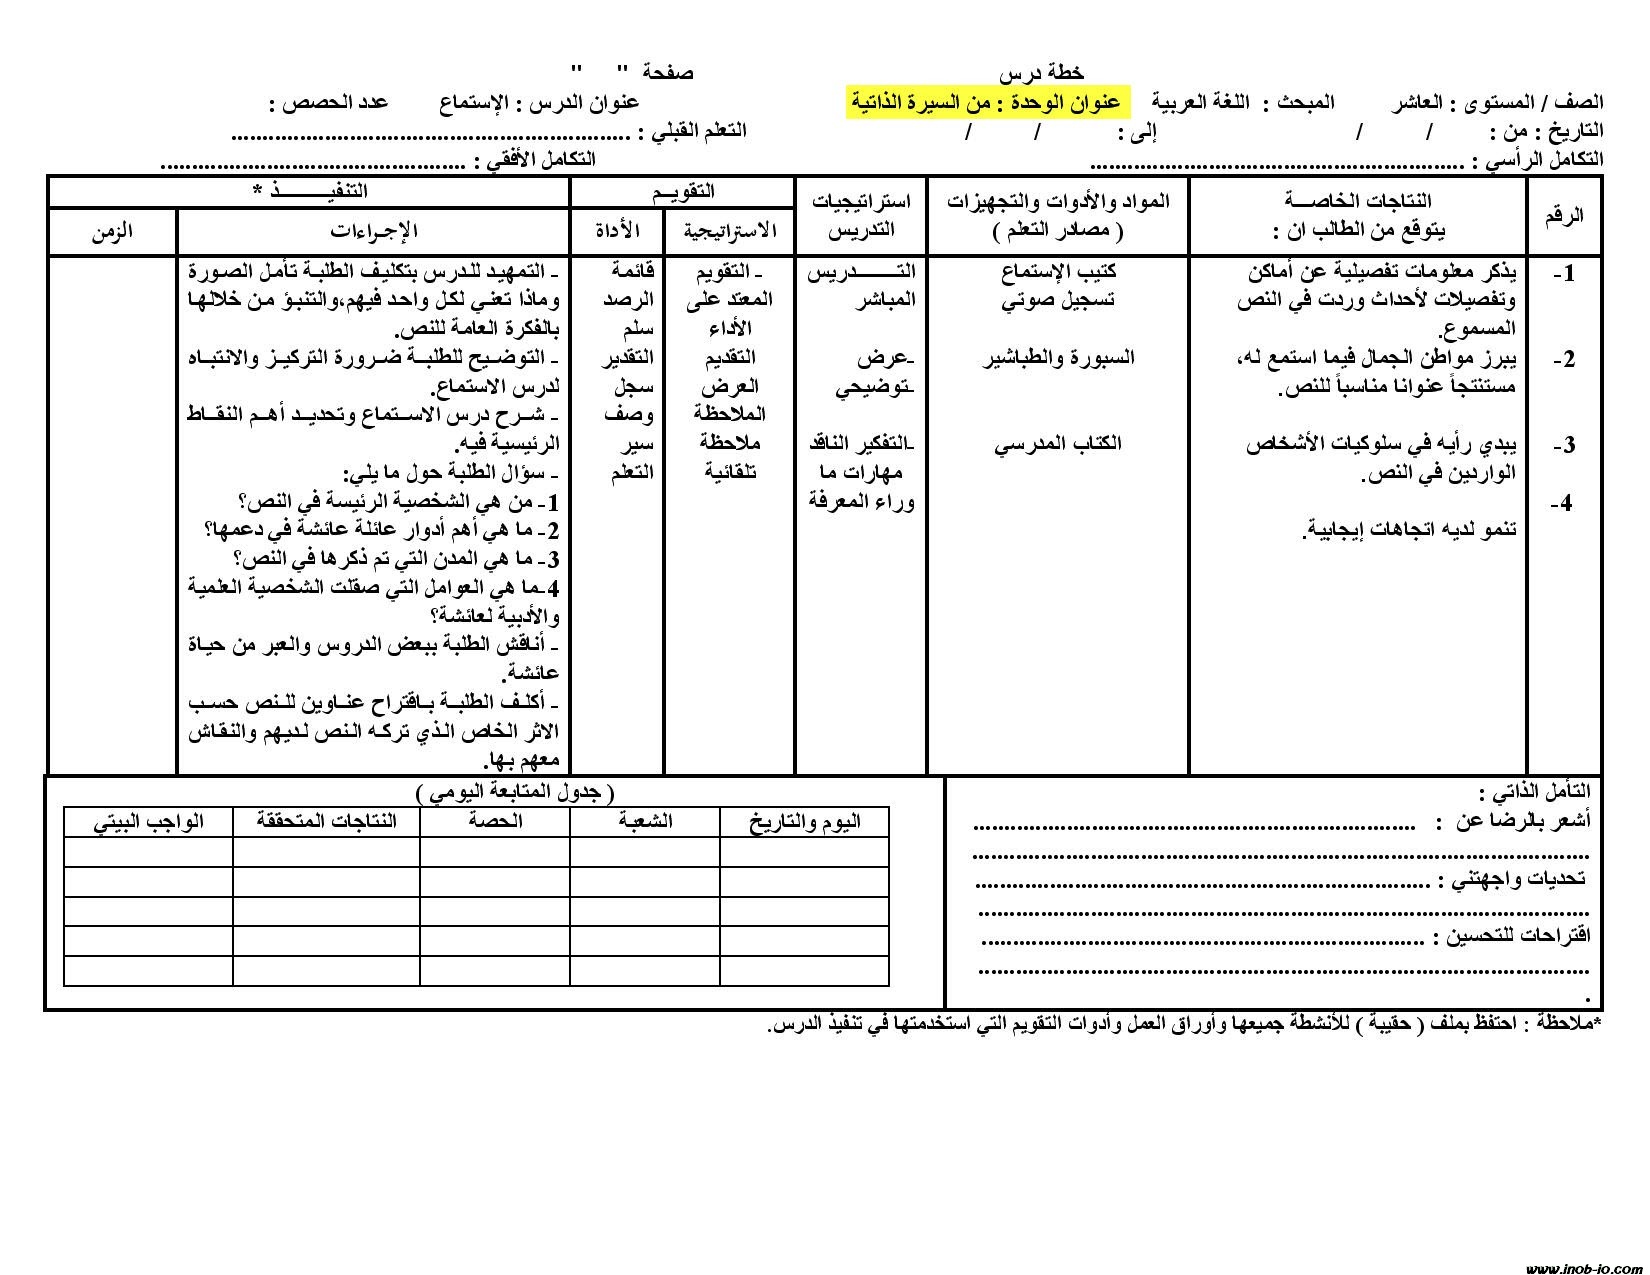 خطة درس صفحة " "
الصف / المستوى : العاشر المبحث : اللغة العربية عنوان الوحدة : من السيرة الذاتية عنوان الدرس : الإستماع عدد الحصص :
التاريخ : من : / / إلى : / / التعلم القبلي : ................................................................
التكامل الرأسي : ............................................................ التكامل الأفقي : .................................................
الرقم
النتاجات الخاصـــة
يتوقع من الطالب ان :
المواد والأدوات والتجهيزات
( مصادر التعلم )
استراتيجيات
التدريس
التقويــم
الاستراتيجية
الأداة
التنفيـــــــــذ *
الإجـراءات
الزمن
1-
يذكر معلومات تفصيلية عن أماكن
وتفصيلات لأحداث وردت في النص
المسموع.
2-
يبرز مواطن الجمال فيما استمع له،
مستنتجاً عنوانا مناسباً للنص.
3-
يبدي رأيه في سلوكيات الأشخاص
الواردين في النص.
4-
تنمو لديه اتجاهات إيجابية.
كتيب الإستماع
تسجيل صوتي
السبورة والطباشير
الكتاب المدرسي
التـــــــدريس
المباشر
-عرض
-توضيحي
-التفكير الناقد
مهارات ما
وراء المعرفة
- التقويم
المعتد على
الأداء
التقديم
العرض
الملاحظة
ملاحظة
تلقائية
قائمة
الرصد
سلم
التقدير
سجل
وصف
سير
التعلم
- التمهيد للدرس بتكليف الطلبة تأمل الصورة
وماذا تعني لكل واحد فيهم،والتنبؤ من خلالها
بالفكرة العامة للنص.
- التوضيح للطلبة ضرورة التركيز والانتباه
لدرس الاستماع.
- شرح درس الاستماع وتحديد أهم النقاط
الرئيسية فيه.
- سؤال الطلبة حول ما يلي:
1- من هي الشخصية الرئيسة في النص؟
2- ما هي أهم أدوار عائلة عائشة في دعمها؟
3- ما هي المدن التي تم ذكرها في النص؟
4-ما هي العوامل التي صقلت الشخصية العلمية
والأدبية لعائشة؟
- أناقش الطلبة ببعض الدروس والعبر من حياة
عائشة.
- أكلف الطلبة باقتراح عناوين للنص حسب
الاثر الخاص الذي تركه النص لديهم والنقاش
معهم بها.
التأمل الذاتي :
أشعر بالرضا عن : .......................................................................
...................................................................................................
تحديات واجهتني : .........................................................................
..................................................................................................
اقتراحات للتحسين : .......................................................................
..................................................................................................
.
( جدول المتابعة اليومي )
اليوم والتاريخ الشعبة الحصة النتاجات المتحققة الواجب البيتي
*ملاحظة : احتفظ بملف ( حقيبة ) للأنشطة جميعها وأوراق العمل وأدوات التقويم التي استخدمتها في تنفيذ الدرس.
www.inob-jo.com